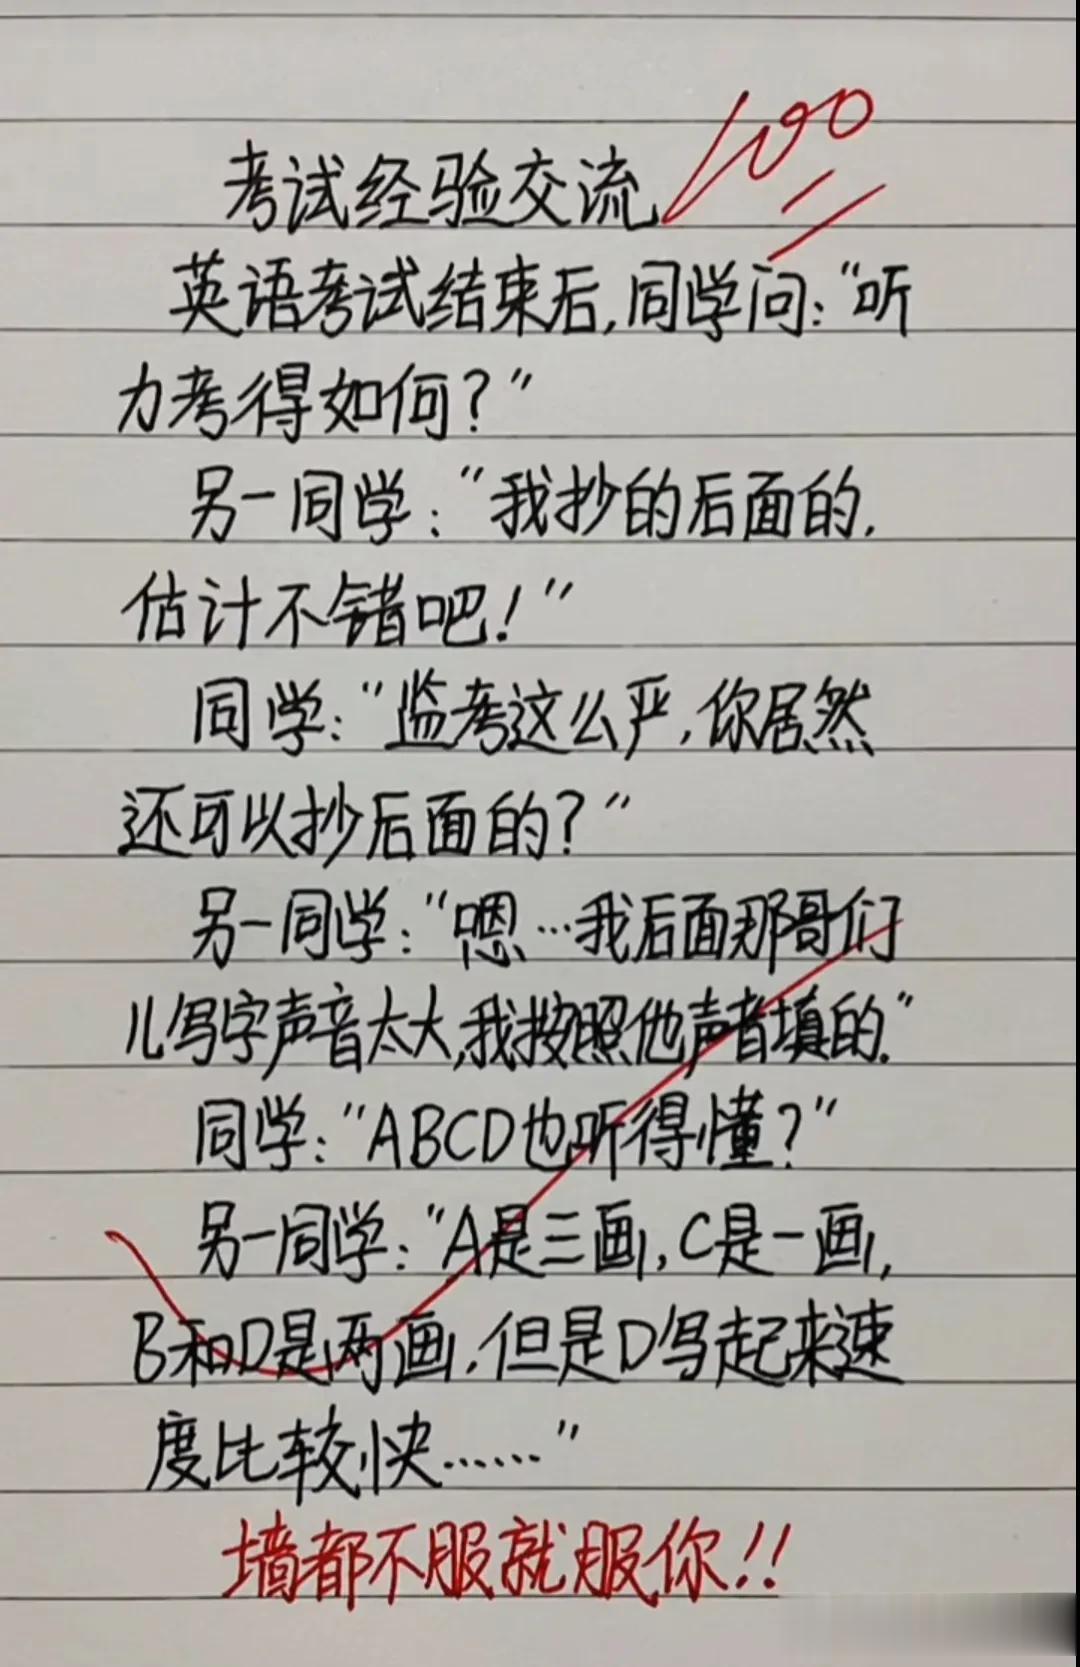 考试经验交流
100
英语考试结束后,同学问:“听
力考得如何?”
另一同学:“我抄的后面的,
估计不错吧!”
同学:“监考这么严,你居然
还可以抄后面的?”
另一同学:“嗯…我后面那哥们
儿写字声音太大,我按照他声音填的.”
同学:“ABCD也听得懂?”
另一同学:“A是三画,C是一画,
B和D是两画,但是D写起来速
度比较快……”
墙都不服就服你!!